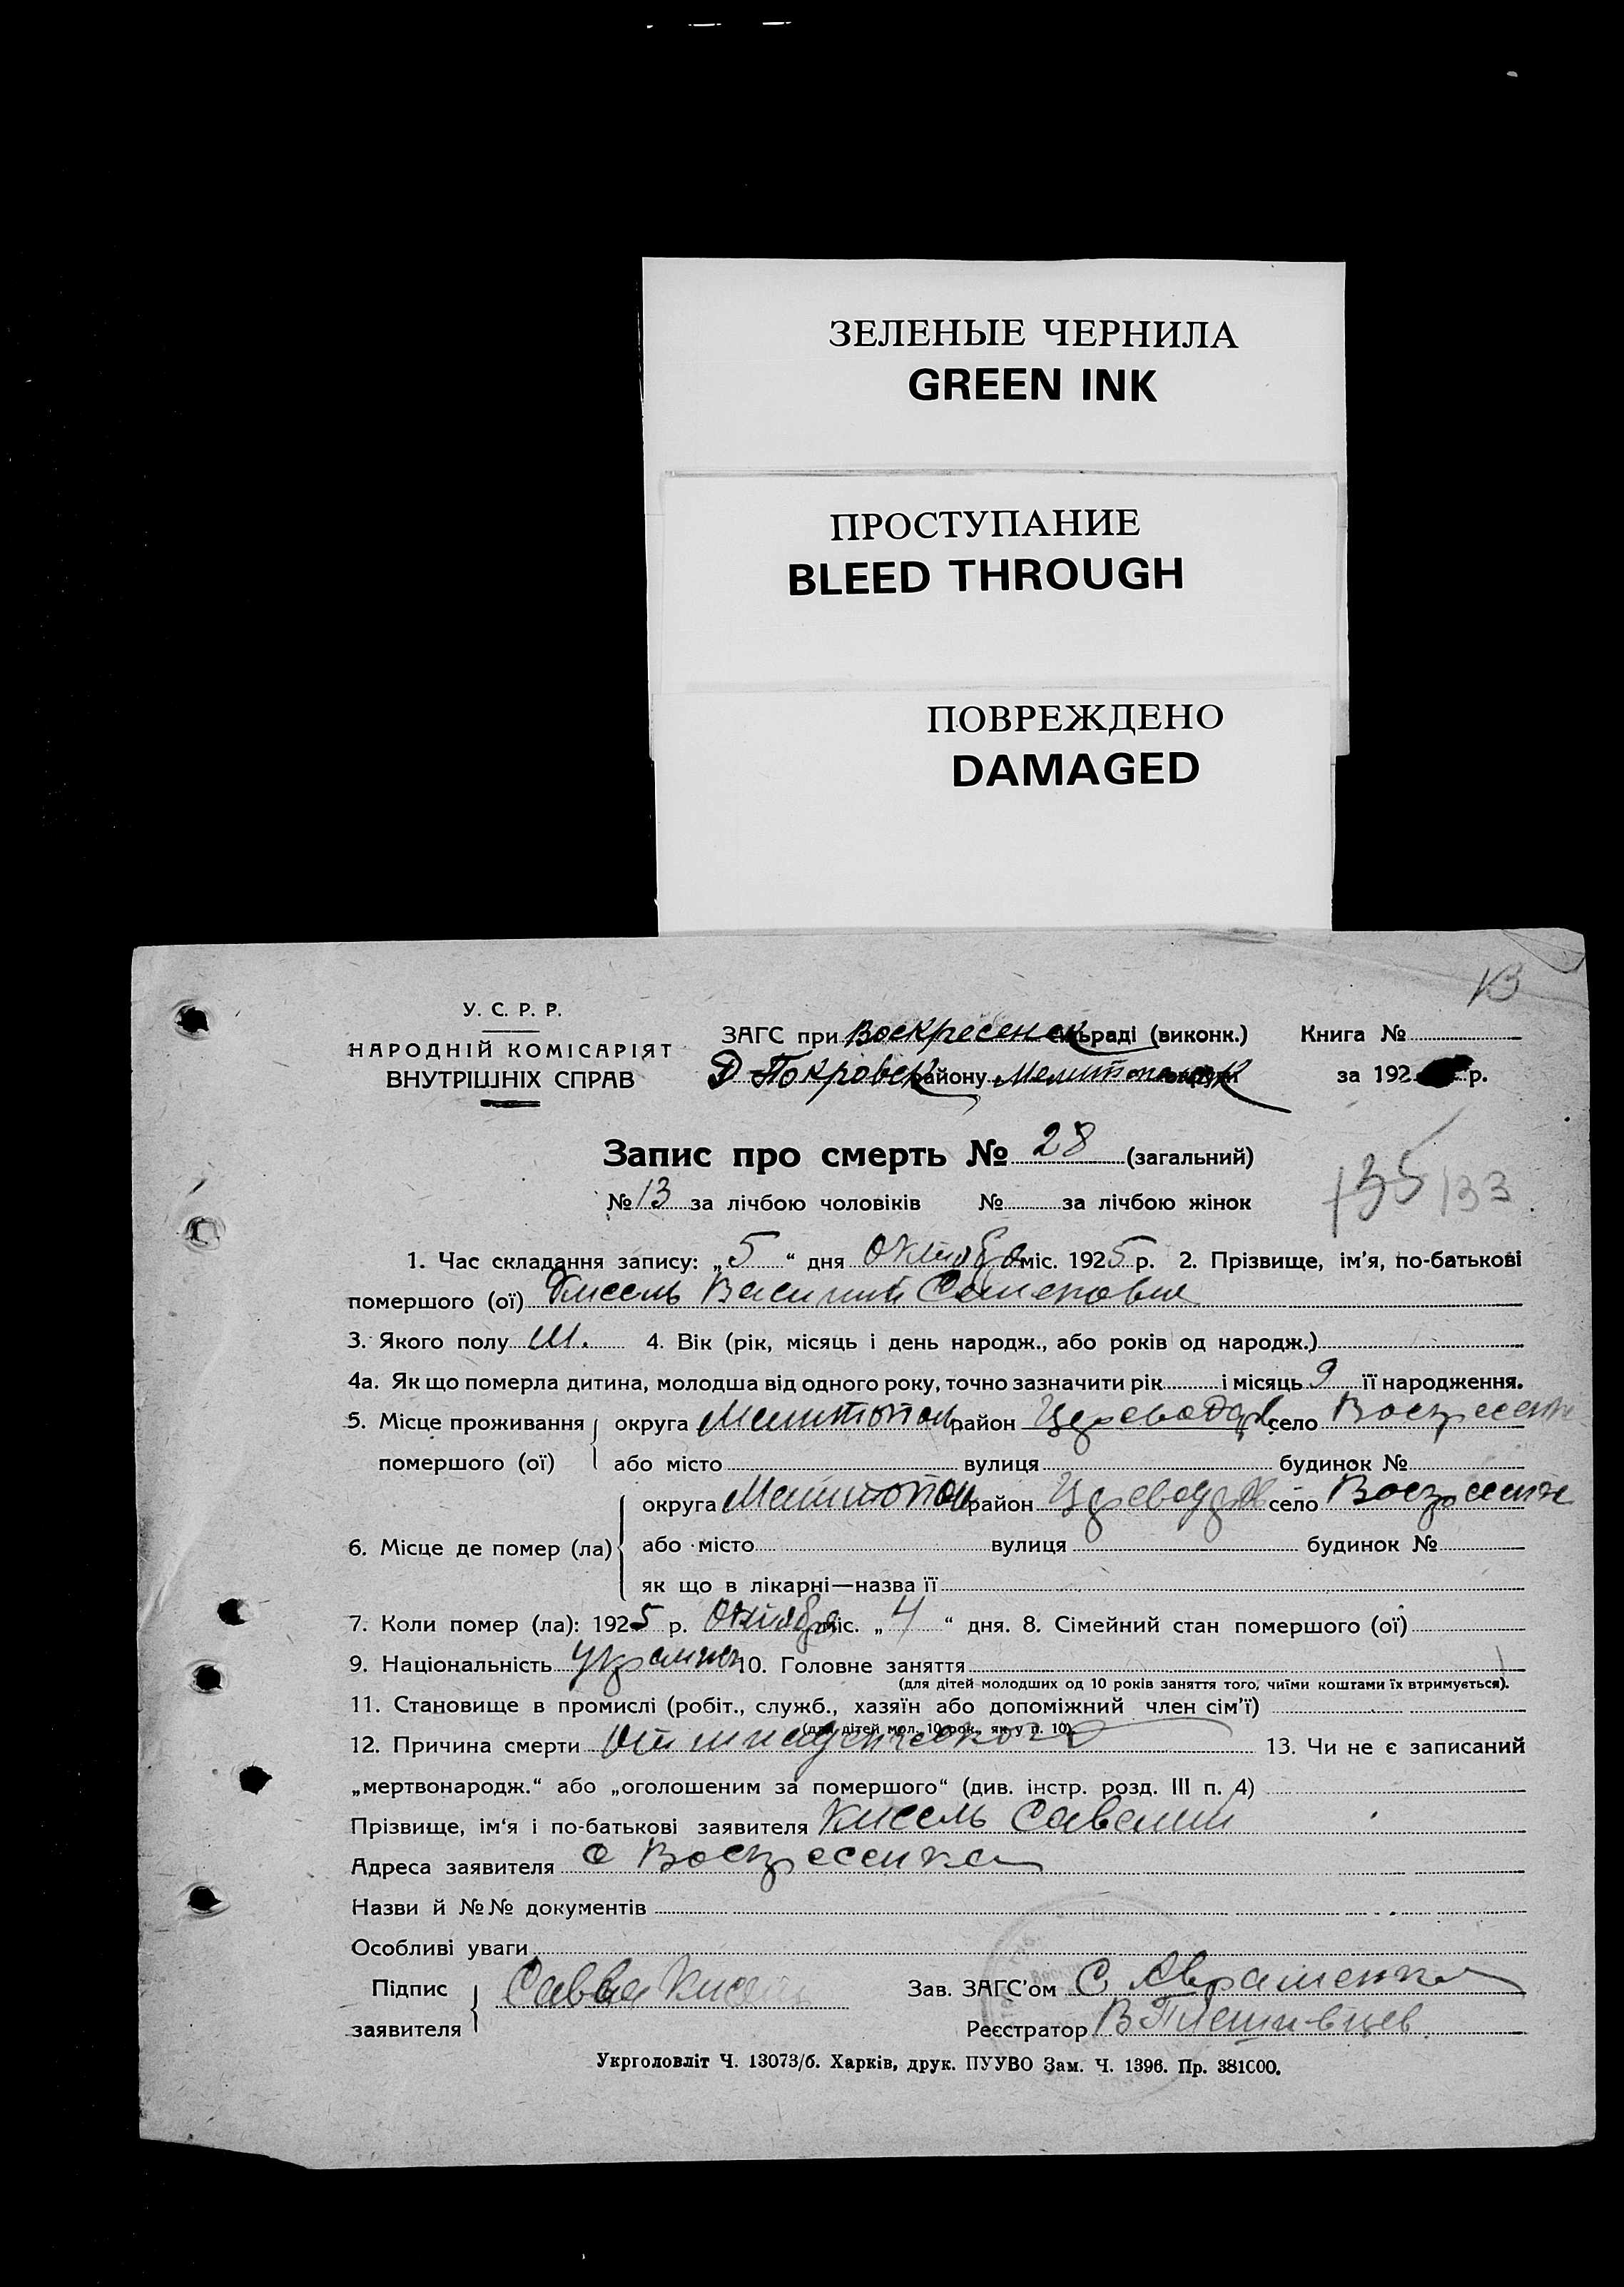 ЗЕЛЕНЫЕ ЧЕРНИЛА
GREEN INK
ПРОСТУПАНИЕ
BLEED THROUGH
ПОВРЕЖДЕНО
DAMAGED
13
У. С. Р. Р.
НАРОДНІЙ КОМІСАРІЯТ
ВНУТРІШНІХ СПРАВ
ЗАГС при Воскресенск сільраді (виконк.) Книга №
Д Покровск району Мелитопольск округи за 192 р.
Запис про смерть № 28 (загальний)
№ 13 за лічбою чоловіків № за лічбою жінок
135 133
1. Час складання запису: „5“ дня Октября міс. 1925 р. 2. Прізвище, ім’я, по-батькові
помершого (ої) Кисель Василий Семенович
3. Якого полу м. 4. Вік (рік, місяць і день народж., або років од народж.)
4а. Як що померла дитина, молодша від одного року, точно зазначити рік і місяць 9 її народження.
5. Місце проживання помершого (ої) округа Мелитопол район село Воскресенк
або місто вулиця будинок №
6. Місце де помер (ла) округа Мелитопол район село Воскресенк
або місто вулиця будинок №
як що в лікарні—назва її
7. Коли помер (ла): 1925 р. Октября міс. „4“ дня. 8. Сімейний стан помершого (ої)
9. Національність 10. Головне заняття
(для дітей молодших од 10 років заняття того, чиїми коштами їх втримується).
11. Становище в промислі (робіт., служб., хазяїн або допоміжний член сім’ї)
(для дітей мол. 10 рок., як у п. 10)
12. Причина смерти От 13. Чи не є записаний
„мертвонародж.“ або „оголошеним за помершого“ (див. інстр. розд. III п. 4)
Прізвище, ім‘я і по-батькові заявителя Кисель Савелий
Адреса заявителя с Воскресенка
Назви й №№ документів
Особливі уваги
Підпис заявителя Савва Кисель
Зав. ЗАГС’ом С Авраменко
Реєстратор В
Укрголовліт Ч. 13073/б. Харків, друк. ПУУВО Зам. Ч. 1396. Пр. 381000.